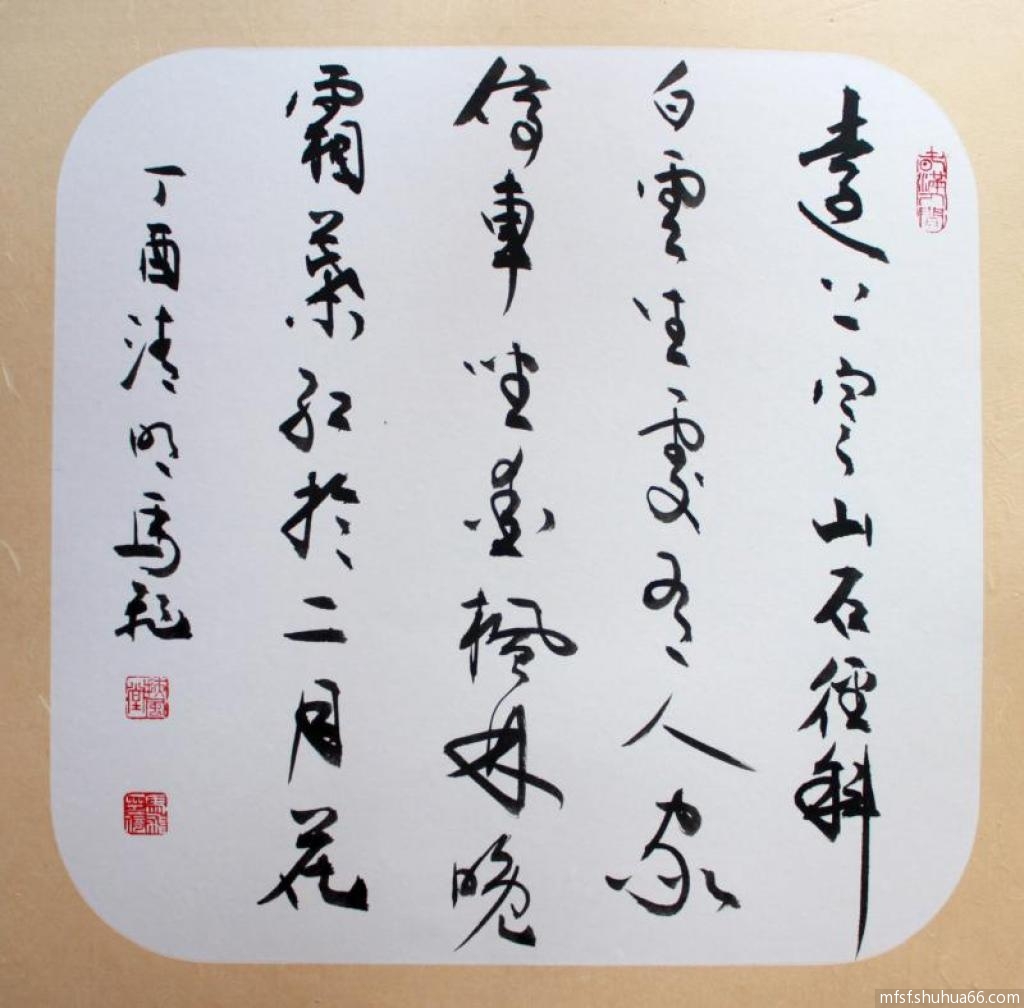 遠上寒山石径斜
白雲生處有人家
停車坐愛楓林晚
霜葉红於二月花
丁酉清明馬飛
mfsf.shuhua66.com